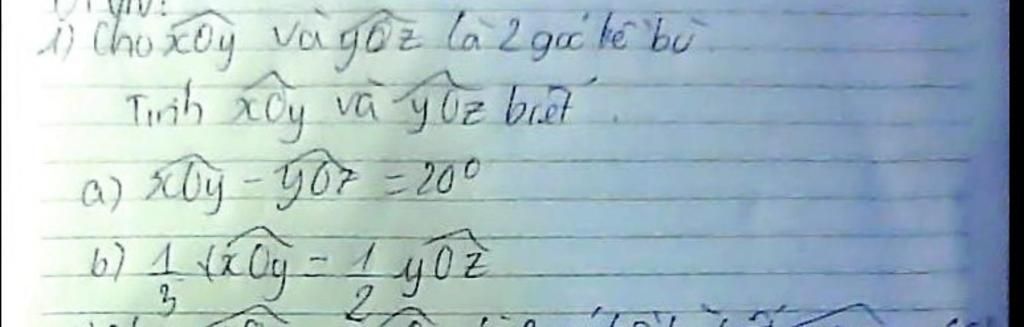 1) Cho xOy và yOz là 2 góc kề bù.
Tính xOy và yOz biết.
a) xOy - yOz = 20°
b) 1/3 xOy = 1/2 yOz